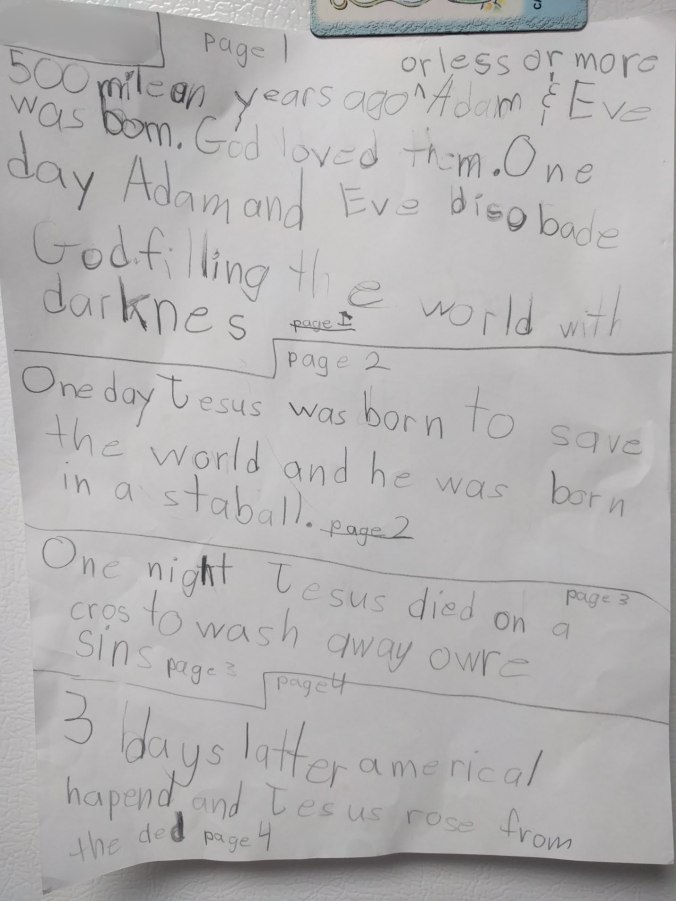 page 1
or less or more
500 milean years ago ^ Adam & Eve
was born. God loved them. One
day Adam and Eve disobade
God. filling the world with
darknes page 1
page 2
One day Jesus was born to save
the world and he was born
in a staball. page 2
One night Jesus died on a
page 3
cros to wash away owre
sins page 3
page 4
3 days latter a merical
hapend and Jesus rose from
the ded page 4